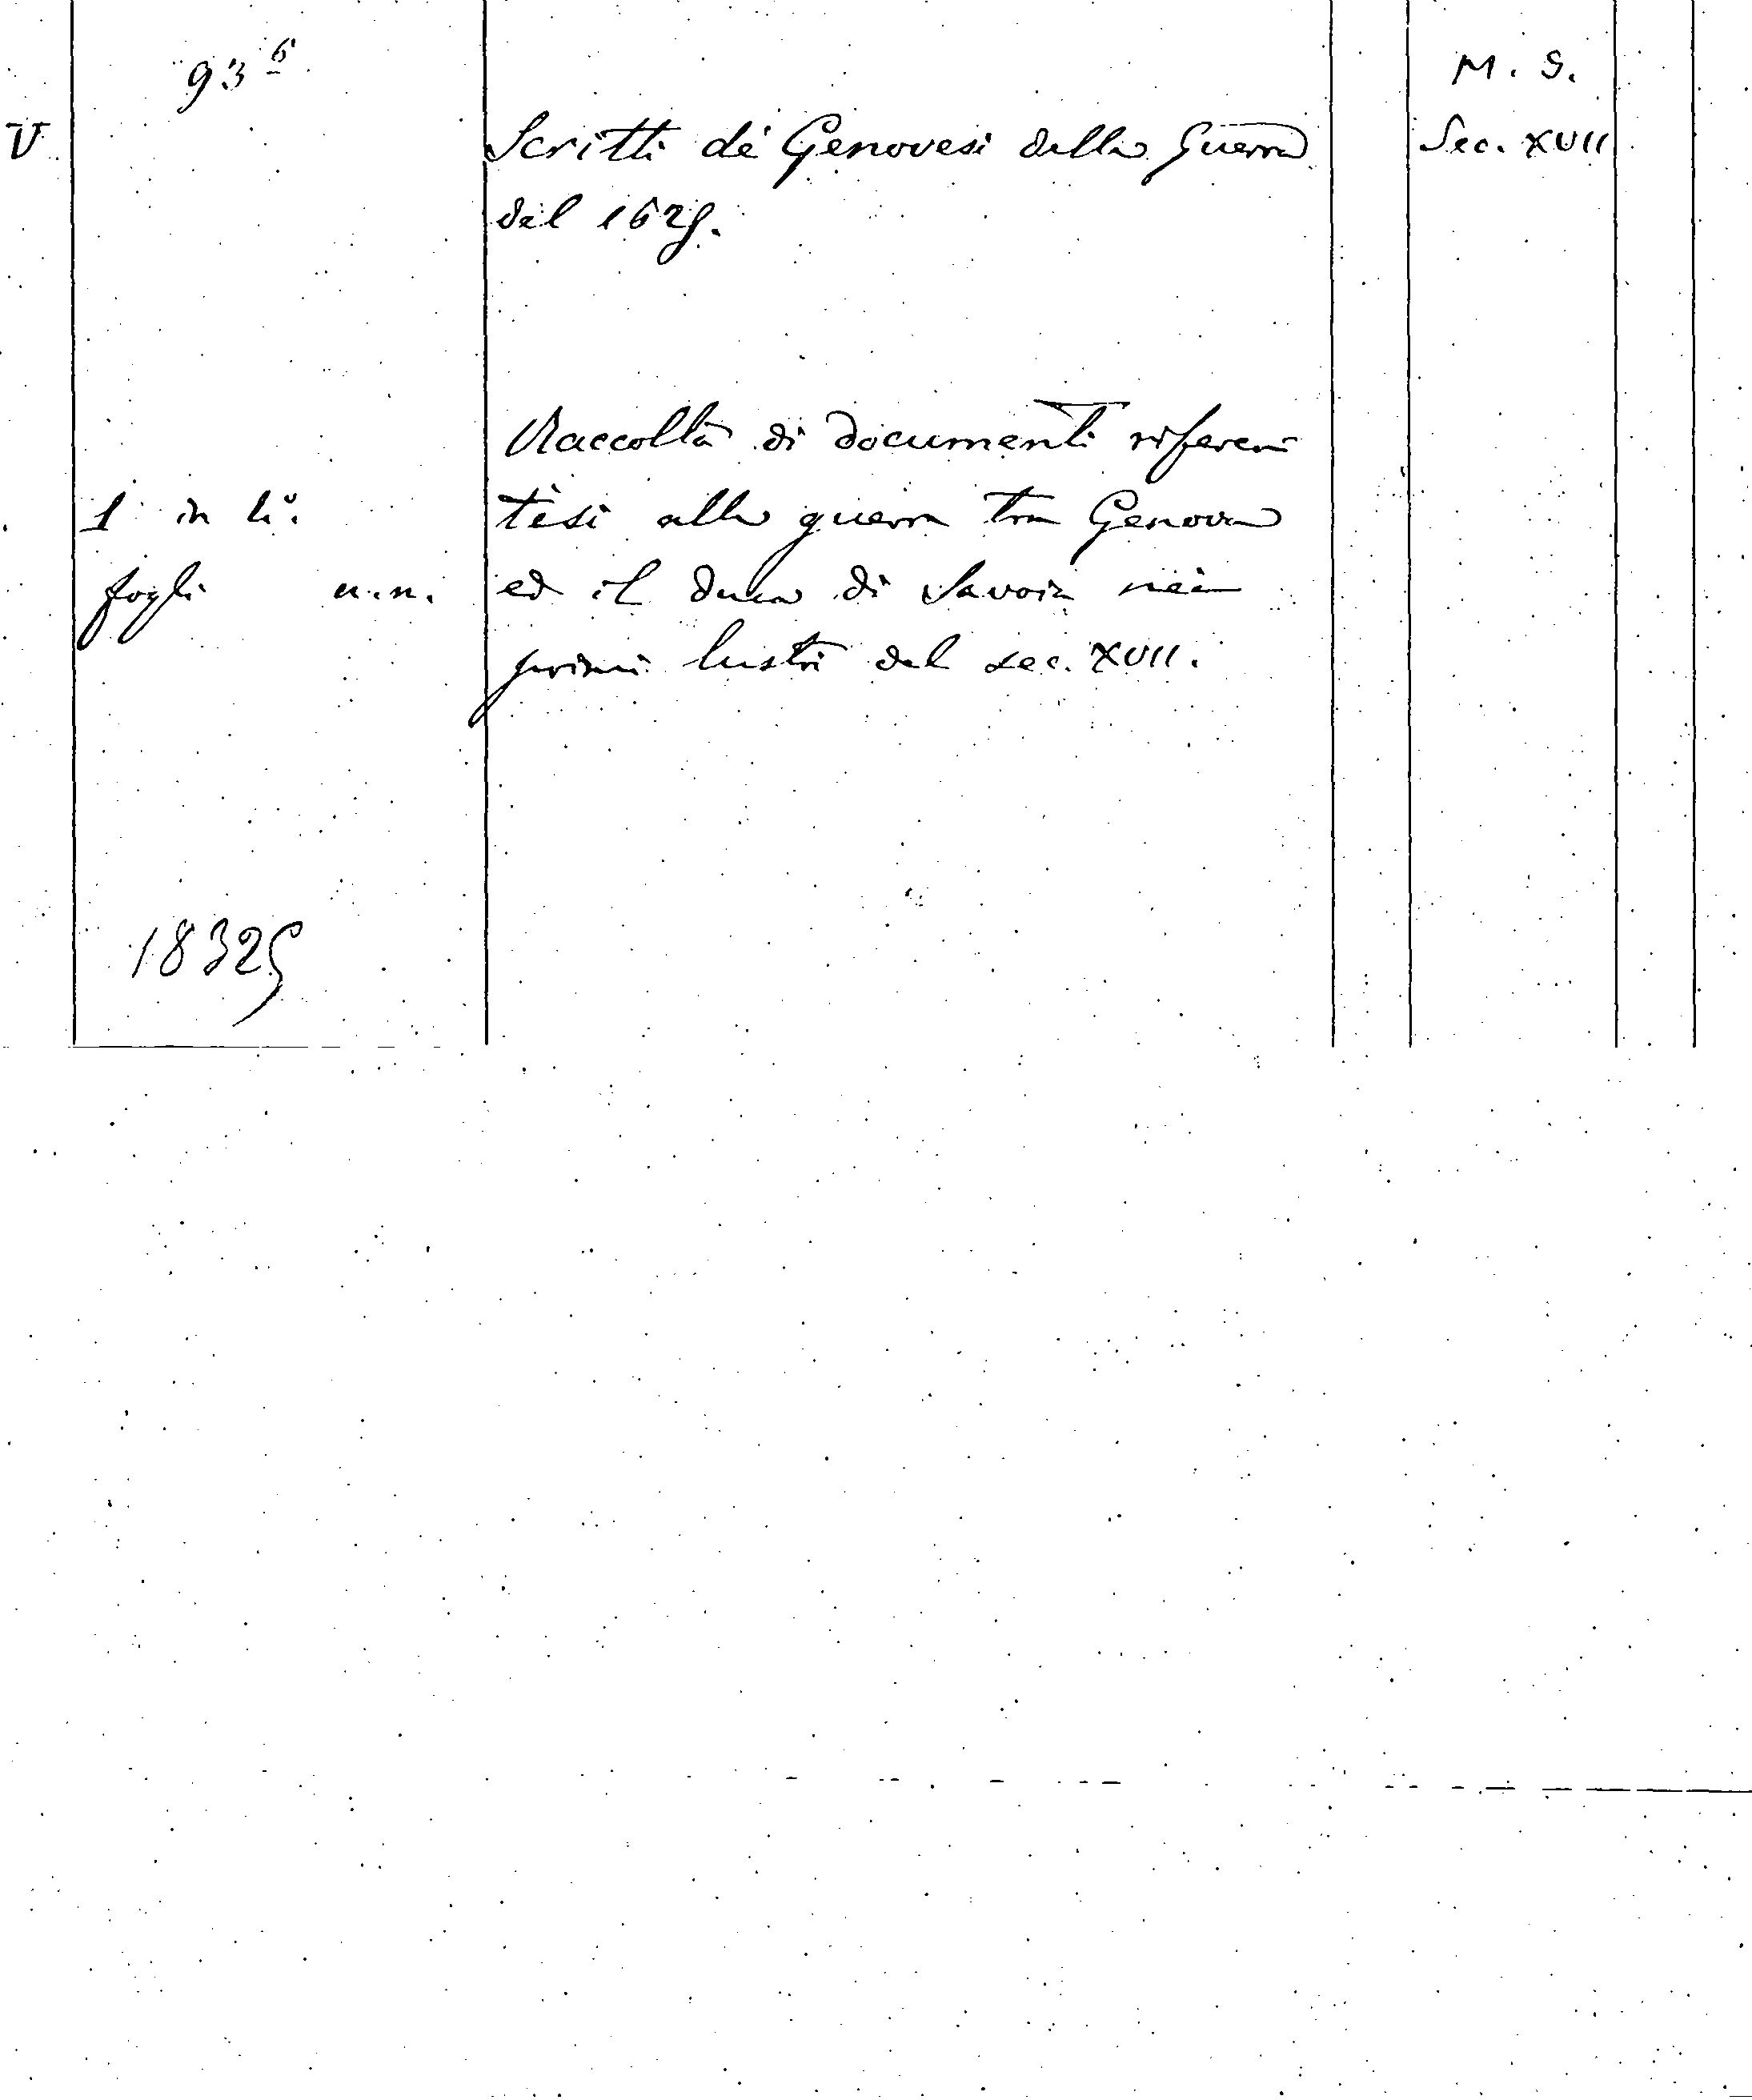 93 6
M. S.
V
Scritti de' Genovesi della Guerra
Sec. XVII
del 1625.
Raccolta di documenti riferen
1 in 4°.
tisi alla guerra tra Genova
fogli n.n.
ed il duca di Savoia nei
primi lustri del sec. XVII.
18325